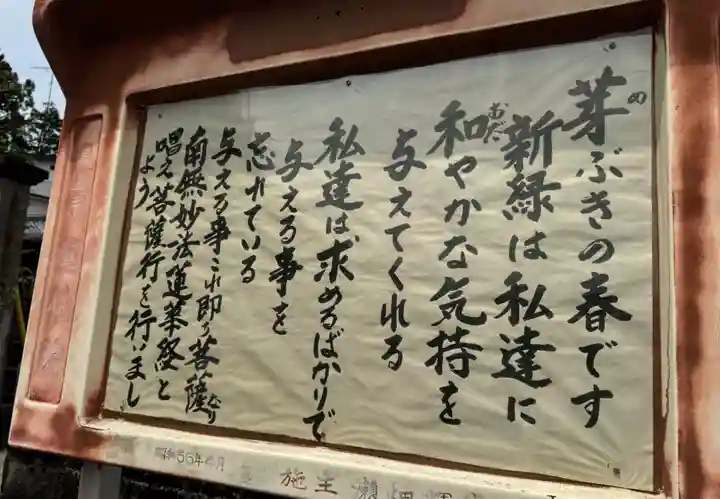 芽ぶきの春です
新緑は私達に
和やかな気持を
与えてくれる
私達は求めるばかりで
与える事を
忘れている
与える事これ即ち菩薩なり
南無妙法蓮華経と
唱え菩薩行を行いまし
よう
56年4月
施主